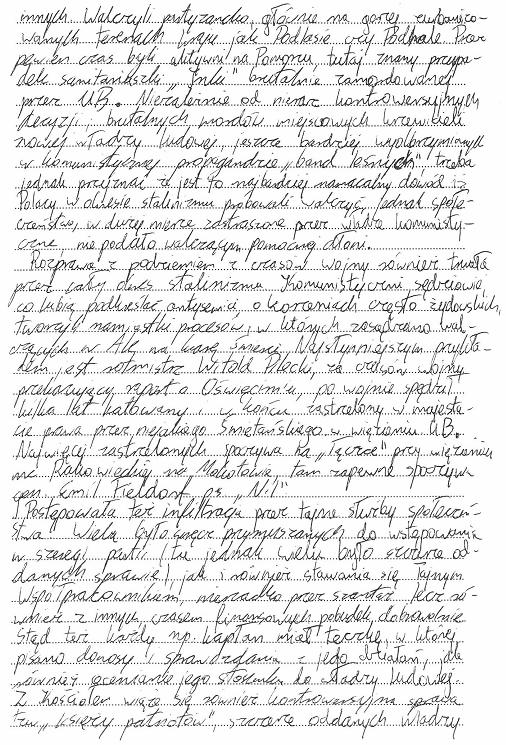 innych. Walczyli partyzancko, głównie na gorzej zurbanizo-
wanych terenach kraju jak Podlasie czy Podhale. Przez
pewien czas byli aktywni na Pomorzu, tutaj znany przypa-
dek sanitariuszki "Inki" brutalnie zamordowanej
przez UB. Niezależnie od nieraz kontrowersyjnych
decyzji i brutalnych mordów miejscowych krzewicieli
nowej władzy ludowej, jeszcze bardziej wyolbrzymianych
w komunistycznej propagandzie "band leśnych" trzeba
jednak przyznać że jest to najbardziej namacalny dowód iż
Polacy w okresie stalinizmu próbowali walczyć, jednak społe-
czeństwo, w dużej mierze zastraszone przez władze komunisty-
czne, nie podało walczącym pomocnej dłoni.
Rozprawa z podziemiem z czasów wojny również trwała
przez cały okres stalinizmu. Komunistyczni sędziowie,
co lubią podkreślać antysemici, o korzeniach często żydowskich,
tworzyli namiastki procesów, w których zasądzano wal-
czących w AK na karę śmierci. Najsłynniejszym przykła-
dem jest rotmistrz Witold Pilecki, za czasów wojny
przekazujący raport o Oświęcimiu, po wojnie spędził
kilka lat katowany i w końcu zastrzelony w majesta-
cie prawa przez niejakiego Śmietańskiego w więzieniu UB.
Najwięcej zastrzelonych spoczywa na "Łączce" przy więzieniu
na Rakowieckiej na Mokotowie, tam zapewne spoczywa
gen. Emil Fieldorf ps. "Nil"
Postępowała też infiltracja przez tajne służby społeczeń-
stwa. Wielu było wręcz przymuszanych do wstępowania
w szeregi partii (tu jednak wielu było szczerze od-
danych sprawie), jak i również stawania się Tajnym
Współpracownikiem, nierzadko przez szantaż lecz ró-
wnież z innych, czasem finansowych pobudek, dobrowolnie.
Stąd też każdy np. kapłan miał teczkę, w której
pisano donosy i sprawozdania z jego działań, ale
również oceniano jego stosunek do władzy ludowej.
Z Kościołem wiąże się również kontrowersyjna sprawa
tzw. "księży patriotów", szczerze oddanych władzy